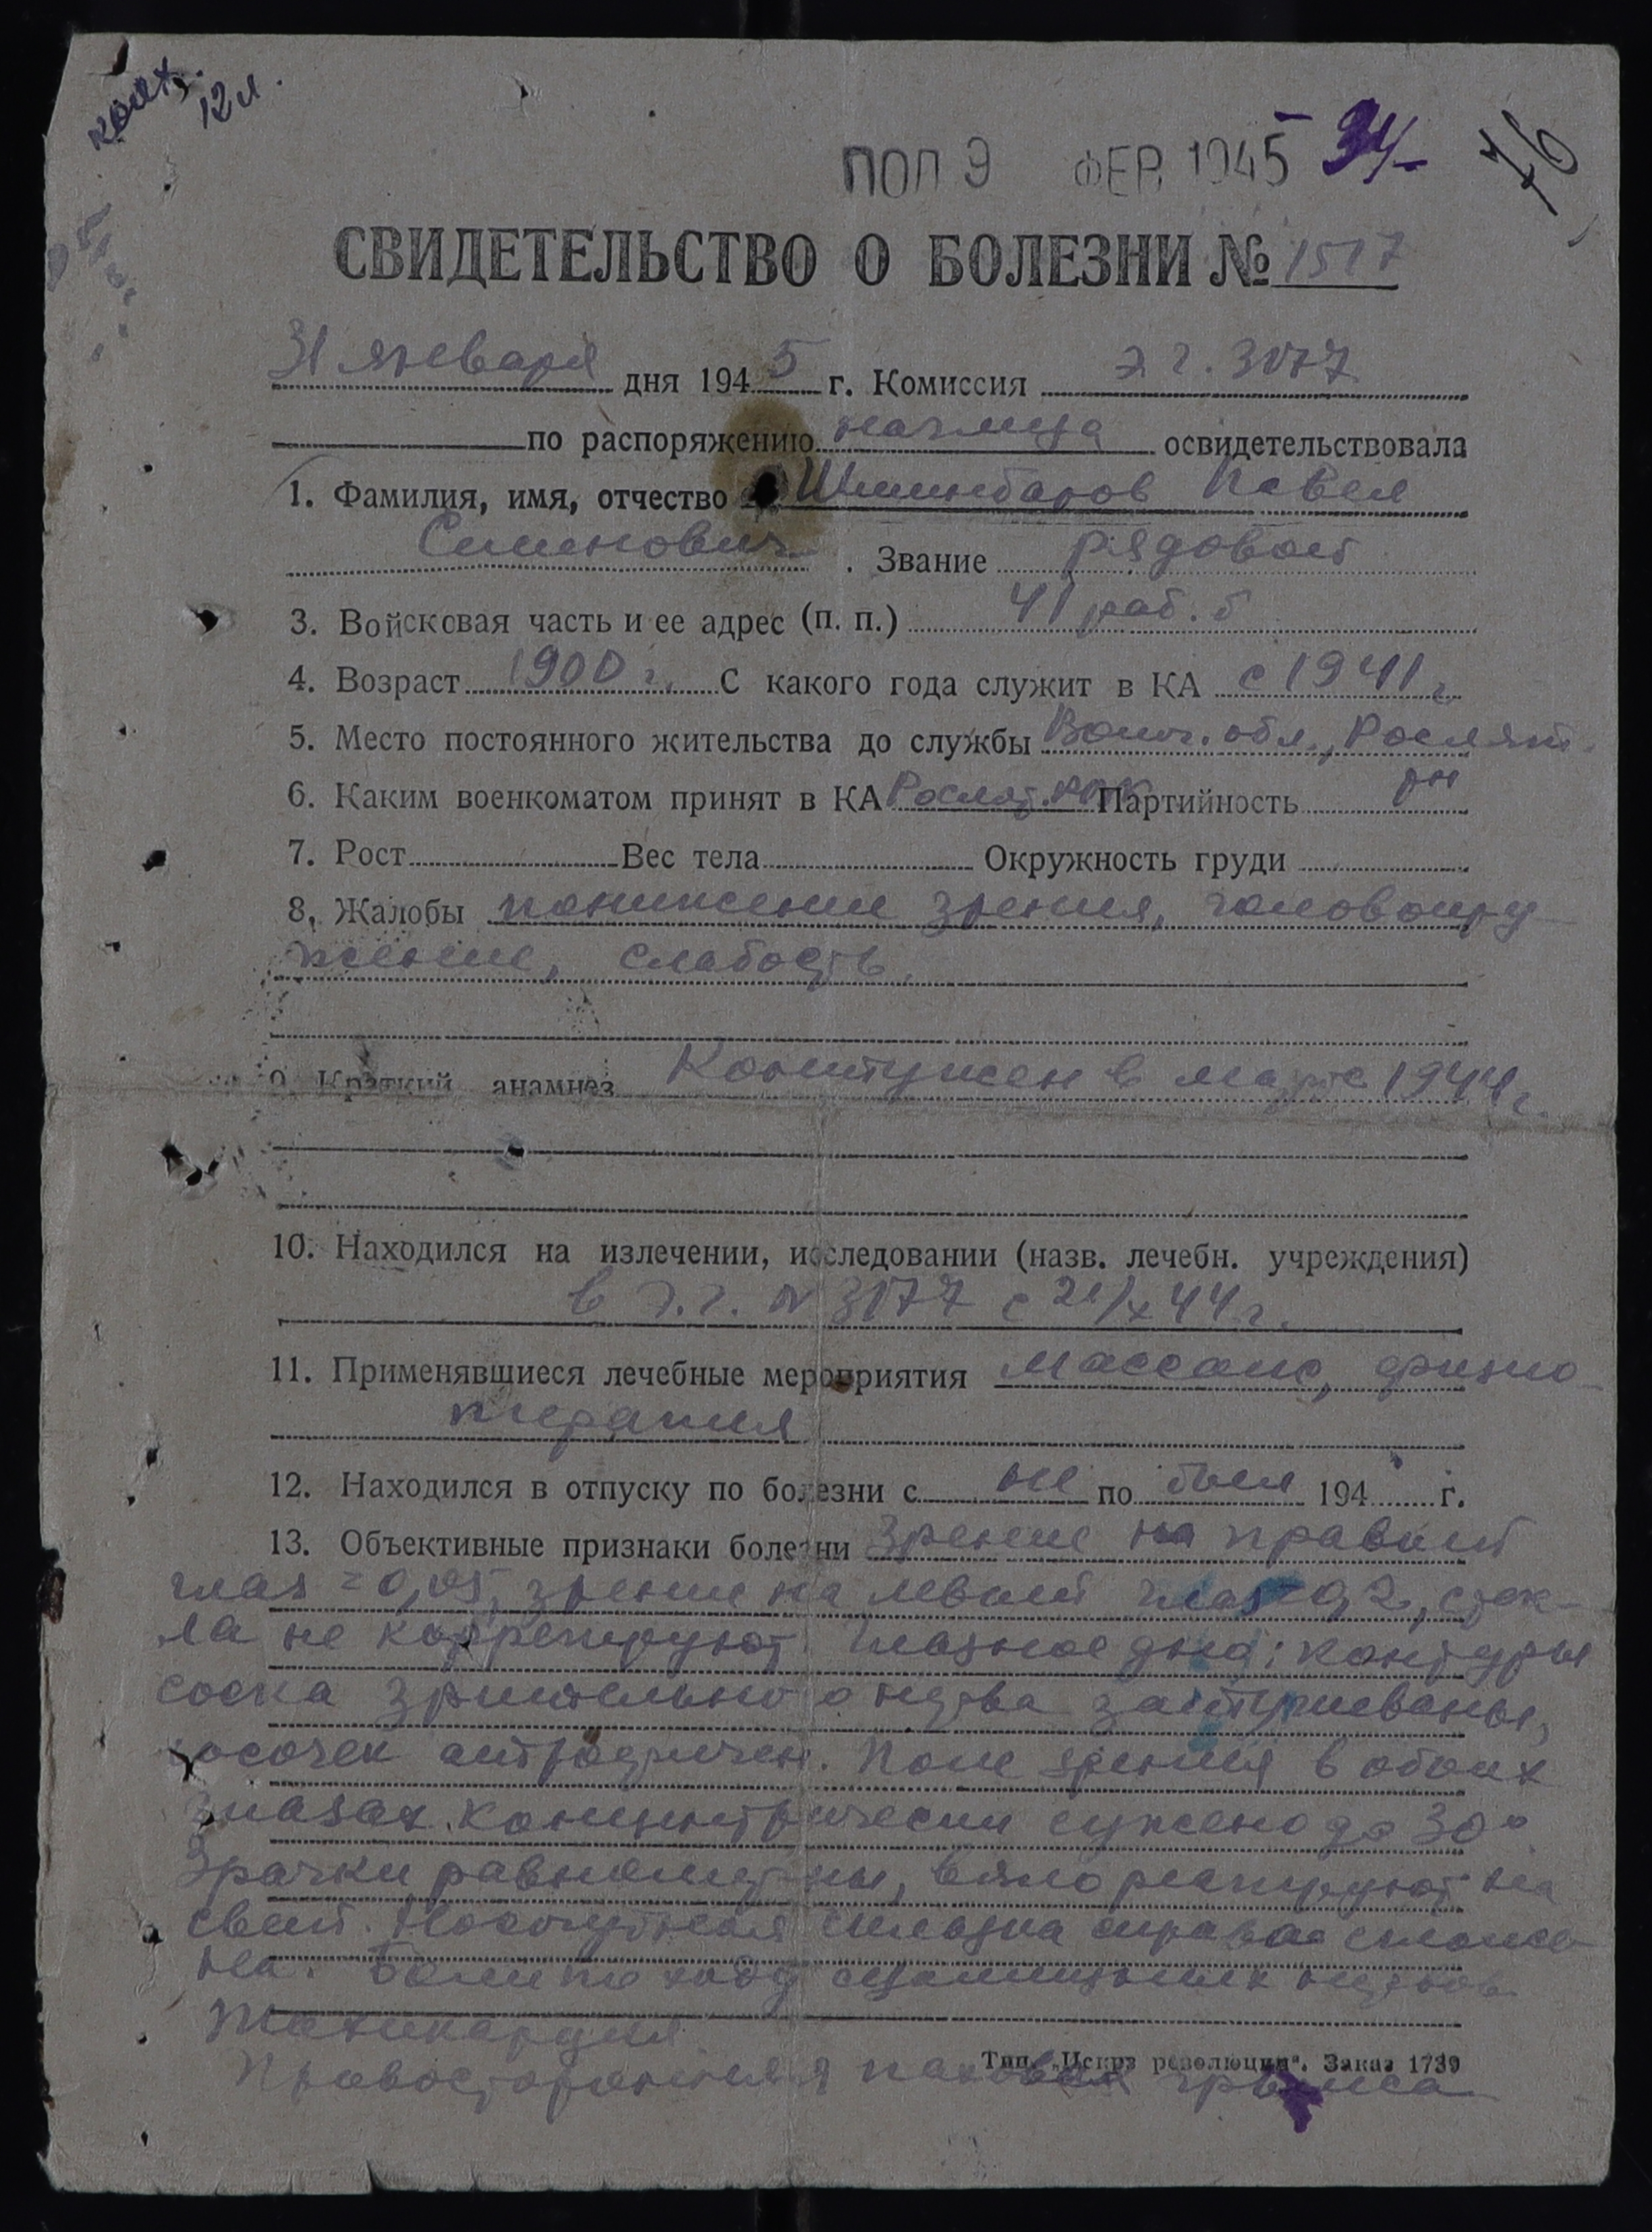 конт. 12 л.
ПОЛ 9 ФЕВ 1945 34 76
СВИДЕТЕЛЬСТВО О БОЛЕЗНИ № 1517
31 января дня 1945 г. Комиссия э. г. 3077
по распоряжению начмеда освидетельствовала
1. Фамилия, имя, отчество Павел
Семенович. Звание рядовой
3. Войсковая часть и ее адрес (п. п.) 41 раб. б
4. Возраст 1900 г. С какого года служит в КА с 1941 г.
5. Место постоянного жительства до службы Волог. обл., Рослят.
6. Каким военкоматом принят в КА Рослят. РВК Партийность рн
7. Рост Вес тела Окружность груди
8. Жалобы понижение зрения, головокру-
жение, слабость.
9. Краткий анамнез Контужен в марте 1944 г.
10. Находился на излечении, исследовании (назв. лечебн. учреждения)
в э. г. № 3077 с 21/X 44 г.
11. Применявшиеся лечебные мероприятия массаж, физио-
терапия
12. Находился в отпуску по болезни с не по был 194 г.
13. Объективные признаки болезни Зрение на правый
глаз = 0,05, зрение на левый глаз = 0,2, стек-
ла не коррегируют. Глазное дно: контуры
соска зрительного нерва заштушеваны,
сосочек атрофичен. Поле зрения в обоих
глазах концентрически сужено до 30°.
Зрачки равномерны, вяло реагируют на
свет. Носогубная складка справа сглаже-
на. Боли по ходу седалищных нервов.
Тахикардия
Правосторонняя паховая грыжа
Тип. „Искра революции". Заказ 1739